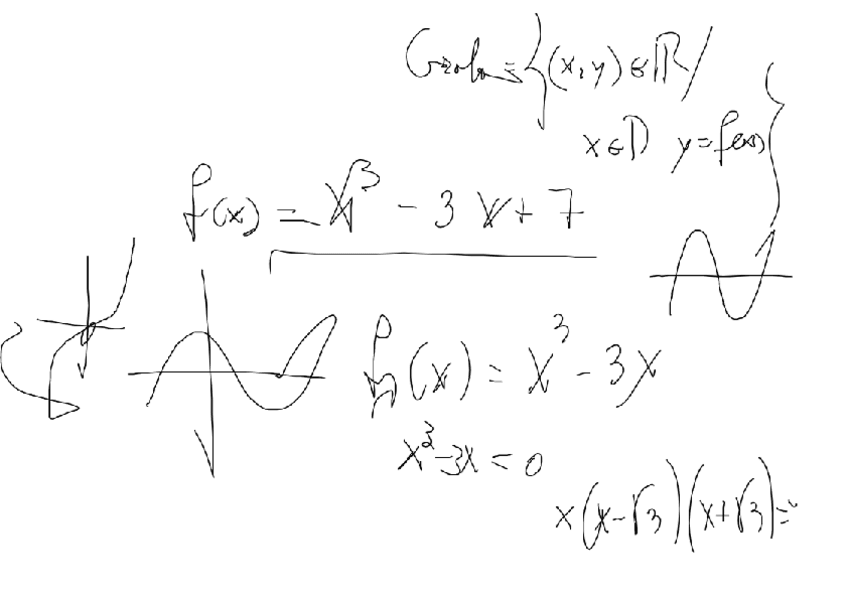 = {(x, y) ∈ ℝ /
x ∈ D y = f(x)}
f(x) = x³ - 3x + 7
(x) = x³ - 3x
x³ - 3x = 0
x(x-√3)(x+√3)=